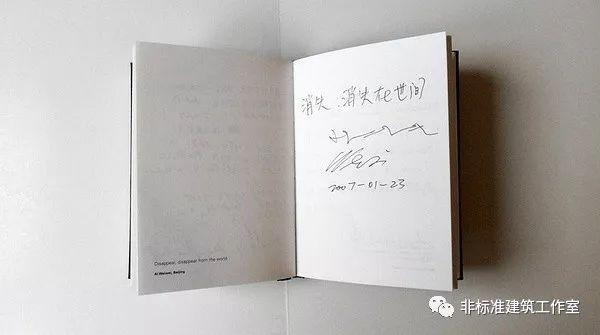 Disappear, disappear from the world
Ai Weiwei, Beijing
消失,消失在世间
2007-01-23
非标准建筑工作室